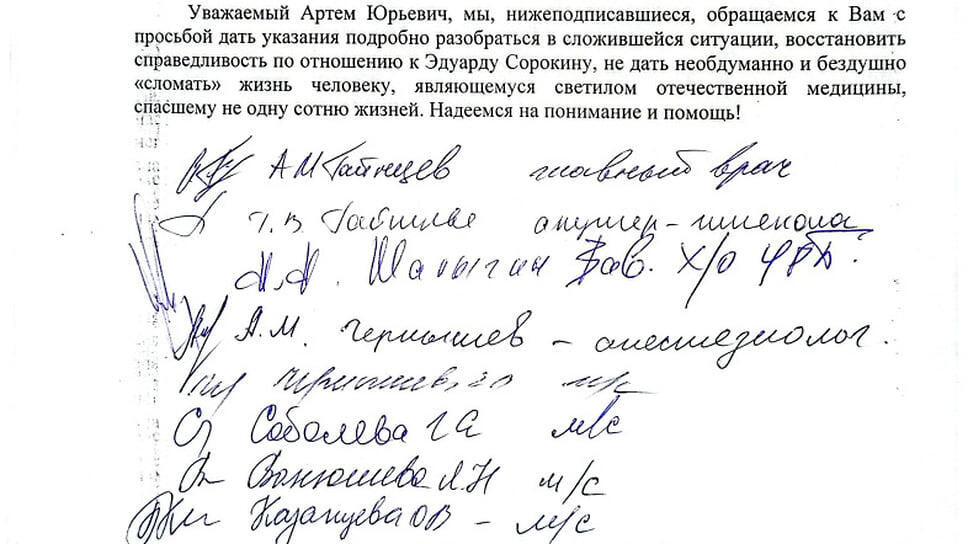 Уважаемый Артем Юрьевич, мы, нижеподписавшиеся, обращаемся к Вам с
просьбой дать указания подробно разобраться в сложившейся ситуации, восстановить
справедливость по отношению к Эдуарду Сорокину, не дать необдуманно и бездушно
«сломать» жизнь человеку, являющемуся светилом отечественной медицины,
спасшему не одну сотню жизней. Надеемся на понимание и помощь!
А М главный врач
Г. В. акушер-гинеколог
А. А. Шалыгин Зав. х/о
А. М. Чернышев – анестезиолог.
м/с
Соболева Г С м/с
Л Н м/с
Казанцева О В – м/с